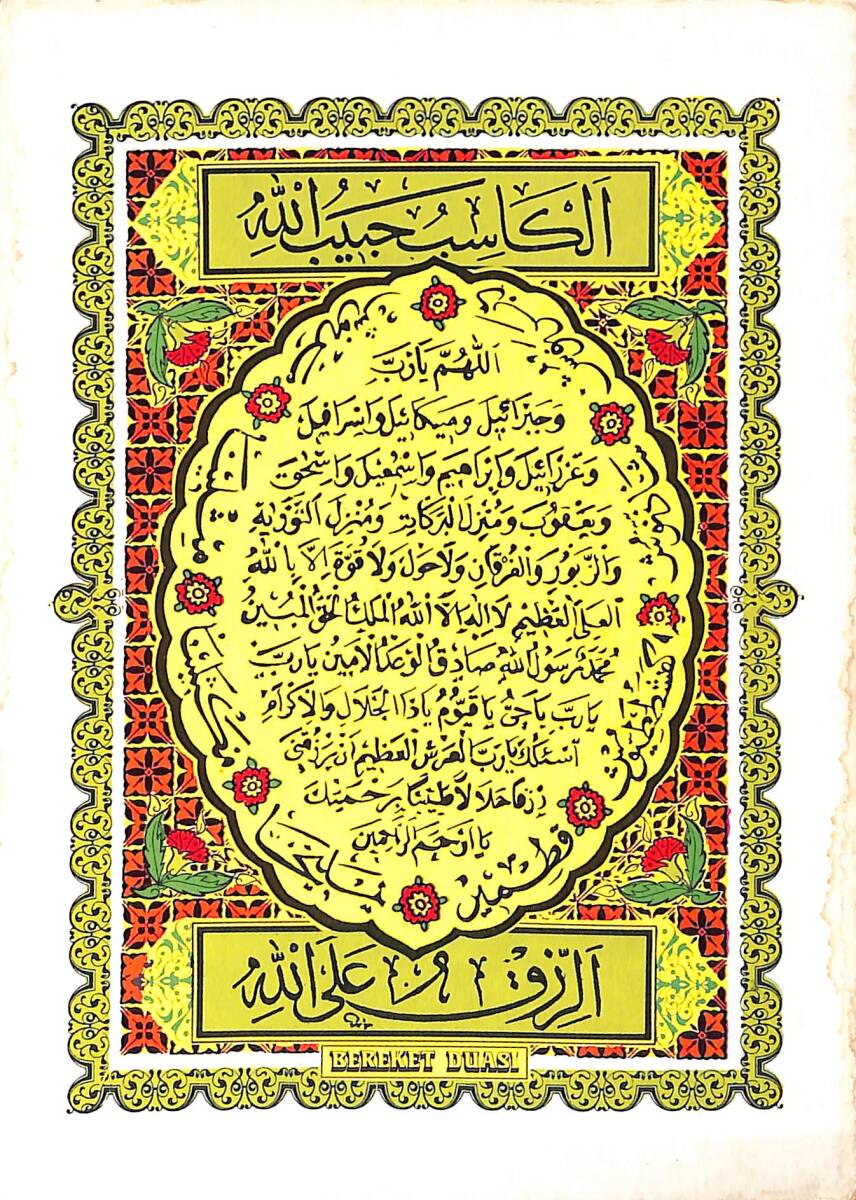 اَلْكَاسِبُ حَبِيبُ اللهِ
اَللّٰهُمَّ يَارَبَّ
وَجَبْرَائِيلَ وَمِيكَائِيلَ وَاِسْرَافِيلَ
وَعَزْرَائِيلَ وَاِبْرَاهِيمَ وَاِسْمٰعِيلَ وَاِسْحٰقَ
وَيَعْقُوبَ وَمُنْزِلَ الْبَرَكَاتِ وَمُنْزِلَ التَّوْرٰيةِ
وَالزَّبُورِ وَالْفُرْقَانِ وَلَاحَوْلَ وَلَاقُوَّةَ اِلَّا بِاللهِ
الْعَلِىِّ الْعَظِيمِ لَا اِلٰهَ اِلَّا اللهُ الْمَلِكُ الْحَقُّ الْمُبِينُ
مُحَمَّدٌ رَسُولُ اللهِ صَادِقُ الْوَعْدِ الْاَمِينُ يَارَبِّ
يَارَبِّ يَاحَىُّ يَاقَيُّومُ يَاذَا الْجَلَالِ وَالْاِكْرَامِ
اَسْئَلُكَ يَارَبَّ الْعَرْشِ الْعَظِيمِ اَنْ يَرْزُقَنِى
رِزْقًا حَلَالًا طَيِّبًا بِرَحْمَتِكَ
يَا اَرْحَمَ الرَّاحِمِينَ
يمليخا
مكثلينا
مثلينا
مرنوش
دبرنوش
شاذنوش
كفشططيوش
قطمير
اَلرِّزْقُ عَلَى اللهِ
BEREKET DUASI